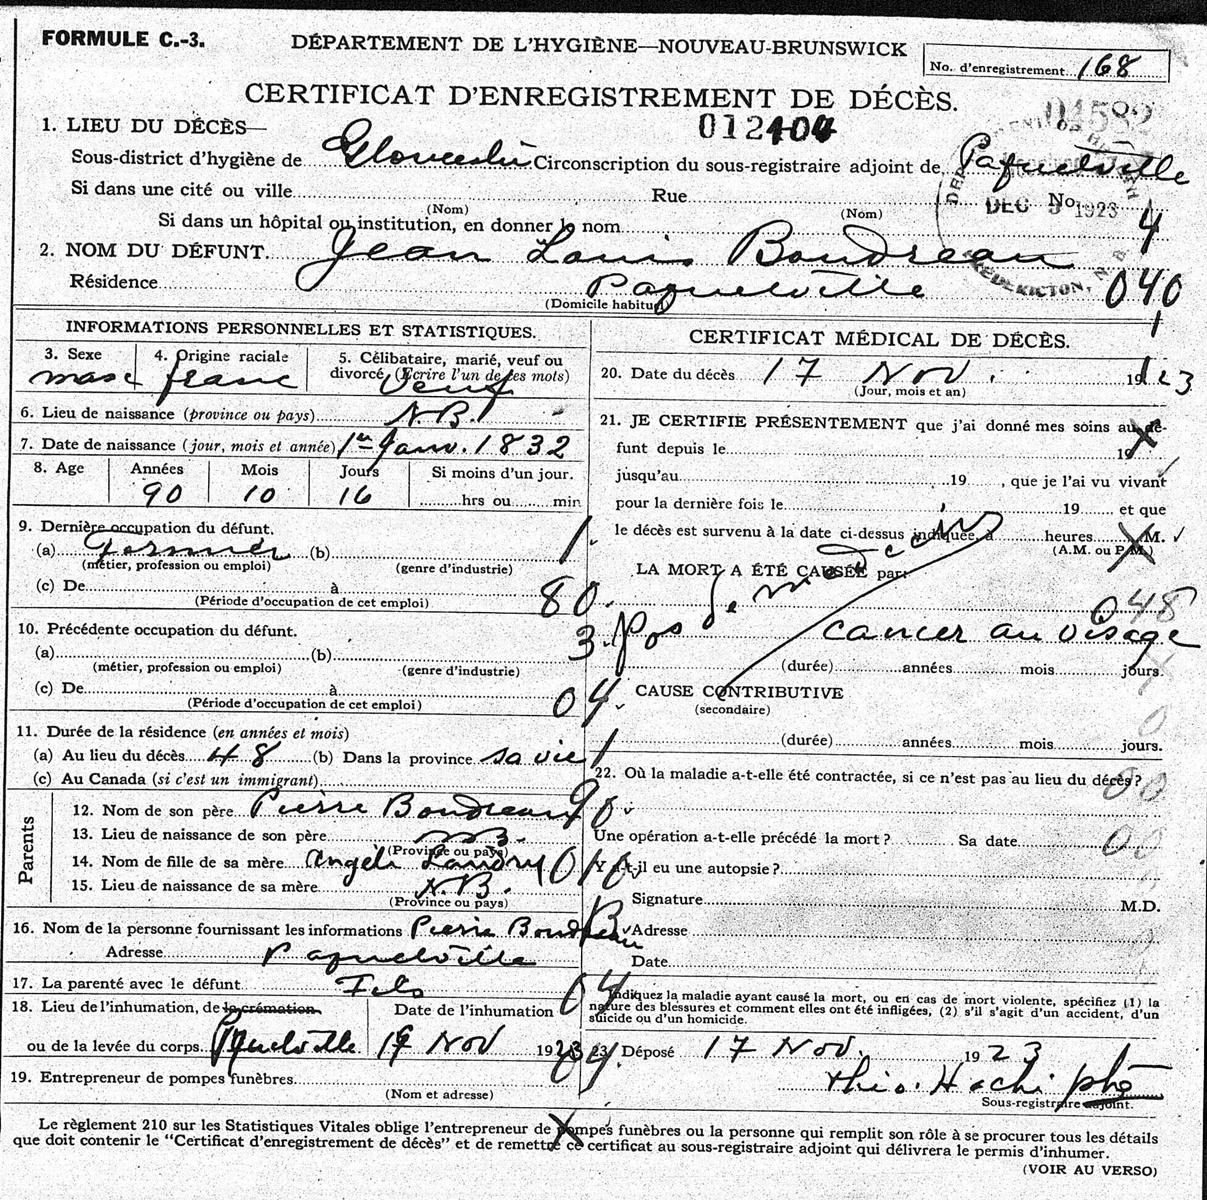 FORMULE C.-3.
DÉPARTEMENT DE L'HYGIÈNE—NOUVEAU-BRUNSWICK
No. d'enregistrement 168
CERTIFICAT D'ENREGISTREMENT DE DÉCÈS.
04582
012404
1. LIEU DU DÉCÈS—
Sous-district d'hygiène de Gloucester Circonscription du sous-registraire adjoint de Paquetville
Si dans une cité ou ville Rue No
(Nom) (Nom)
DEC 5 1923
FREDERICTON, N.B.
Si dans un hôpital ou institution, en donner le nom 4
2. NOM DU DÉFUNT Jean Louis Boudreau
Résidence Paquetville 040
(Domicile habituel)
INFORMATIONS PERSONNELLES ET STATISTIQUES.
3. Sexe masc
4. Origine raciale franc
5. Célibataire, marié, veuf ou
divorcé, (Ecrire l'un de ces mots)
Veuf
6. Lieu de naissance (province ou pays) N.B.
7. Date de naissance (jour, mois et année) 1er Janv. 1832
8. Age Années Mois Jours Si moins d'un jour.
90 10 16 hrs ou min
9. Dernière occupation du défunt.
(a) Fermier (b) 1.
(métier, profession ou emploi) (genre d'industrie)
(c) De à 80.
(Période d'occupation de cet emploi)
10. Précédente occupation du défunt. 3.
(a) (b)
(métier, profession ou emploi) (genre d'industrie)
(c) De à 04.
(Période d'occupation de cet emploi)
11. Durée de la résidence (en années et mois)
(a) Au lieu du décès 48 (b) Dans la province sa vie 1
(c) Au Canada (si c'est un immigrant)
Parents
12. Nom de son père Pierre Boudreau 90.
13. Lieu de naissance de son père N.B.
(Province ou pays)
14. Nom de fille de sa mère Angèle Landry 010
15. Lieu de naissance de sa mère N.B.
(Province ou pays)
16. Nom de la personne fournissant les informations Pierre Boudreau
Adresse Paquetville
17. La parenté avec le défunt Fils 04
18. Lieu de l'inhumation, de la crémation Date de l'inhumation
ou de la levée du corps. Paquetville 19 Nov 1923 04.
19. Entrepreneur de pompes funèbres
(Nom et adresse)
CERTIFICAT MÉDICAL DE DÉCÈS.
20. Date du décès 17 Nov. 1923
(Jour, mois et an)
21. JE CERTIFIE PRÉSENTEMENT que j'ai donné mes soins au dé-
funt depuis le 19
jusqu'au 19 , que je l'ai vu vivant
pour la dernière fois le 19 et que
le décès est survenu à la date ci-dessus indiquée, à heures M.
(A.M. ou P.M.)
LA MORT A ÉTÉ CAUSÉE par:
Pas de medecin
048
cancer au visage
(durée) années mois jours.
CAUSE CONTRIBUTIVE
(secondaire)
0
(durée) années mois jours.
22. Où la maladie a-t-elle été contractée, si ce n'est pas au lieu du décès?
00
Une opération a-t-elle précédé la mort? Sa date 00
Y a-t-il eu une autopsie?
Signature M.D.
Adresse
Date
Indiquez la maladie ayant causé la mort, ou en cas de mort violente, spécifiez (1) la
nature des blessures et comment elles ont été infligées, (2) s'il s'agit d'un accident, d'un
suicide ou d'un homicide.
23. Déposé 17 Nov. 1923
Sous-registraire adjoint.
Le règlement 210 sur les Statistiques Vitales oblige l'entrepreneur de pompes funèbres ou la personne qui remplit son rôle à se procurer tous les détails
que doit contenir le "Certificat d'enregistrement de décès" et de remettre ce certificat au sous-registraire adjoint qui délivrera le permis d'inhumer.
(VOIR AU VERSO)